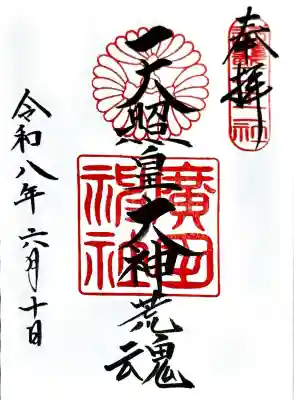 奉拝
天照皇大神荒魂
廣田神社
令和八年六月十日